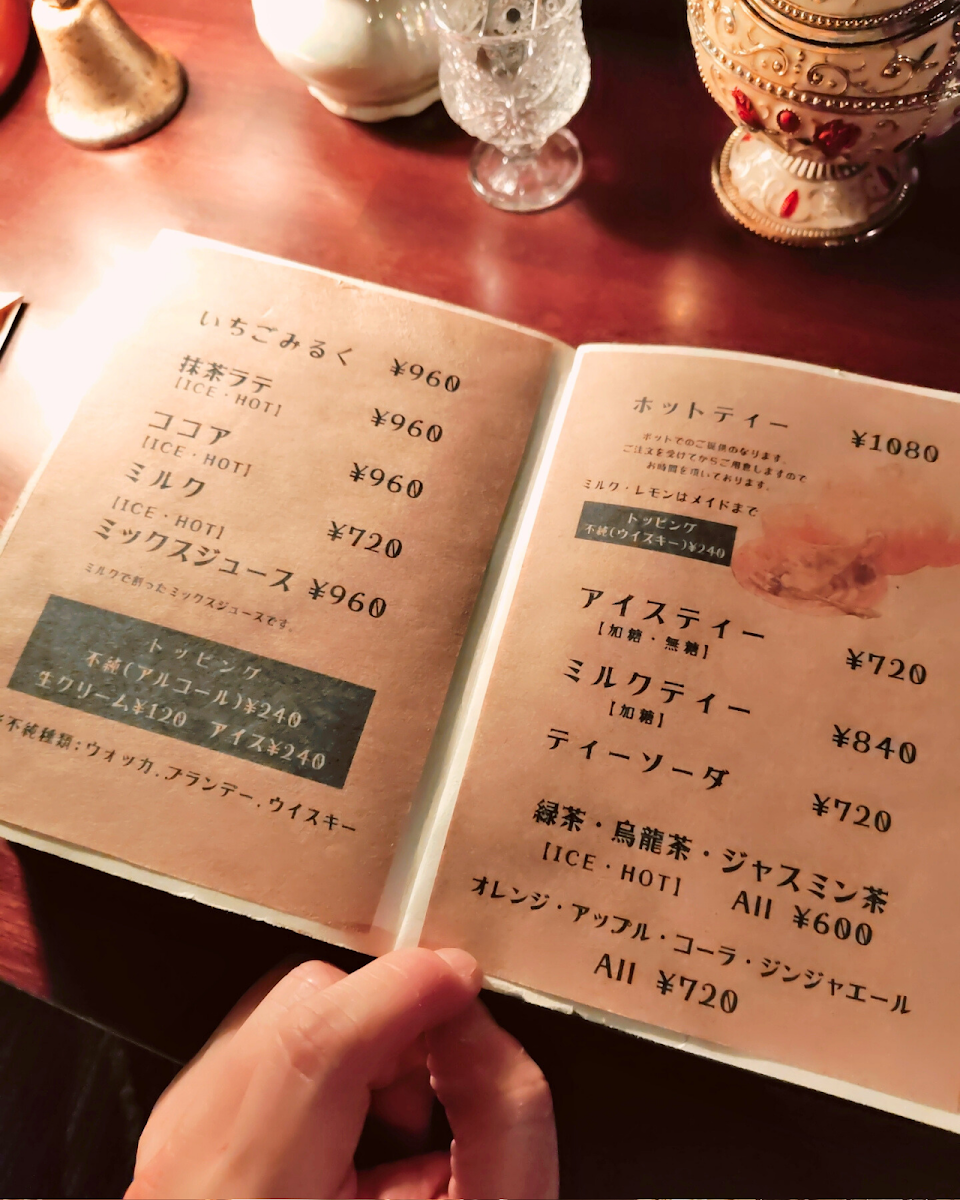 いちごみるく ¥960
抹茶ラテ ¥960
[ICE・HOT]
ココア ¥960
[ICE・HOT]
ミルク ¥720
[ICE・HOT]
ミックスジュース ¥960
ミルクで割ったミックスジュースです。
トッピング
不純(アルコール)¥240
生クリーム¥120 アイス¥240
不純種類:ウォッカ.ブランデー.ウイスキー
ホットティー ¥1080
ポットでのご提供のなります。
ご注文を受けてからご用意しますので
お時間を頂いております。
ミルク・レモンはメイドまで
トッピング
不純(ウイスキー)¥240
アイスティー ¥720
[加糖・無糖]
ミルクティー ¥840
[加糖]
ティーソーダ ¥720
緑茶・烏龍茶・ジャスミン茶
[ICE・HOT] All ¥600
オレンジ・アップル・コーラ・ジンジャエール
All ¥720